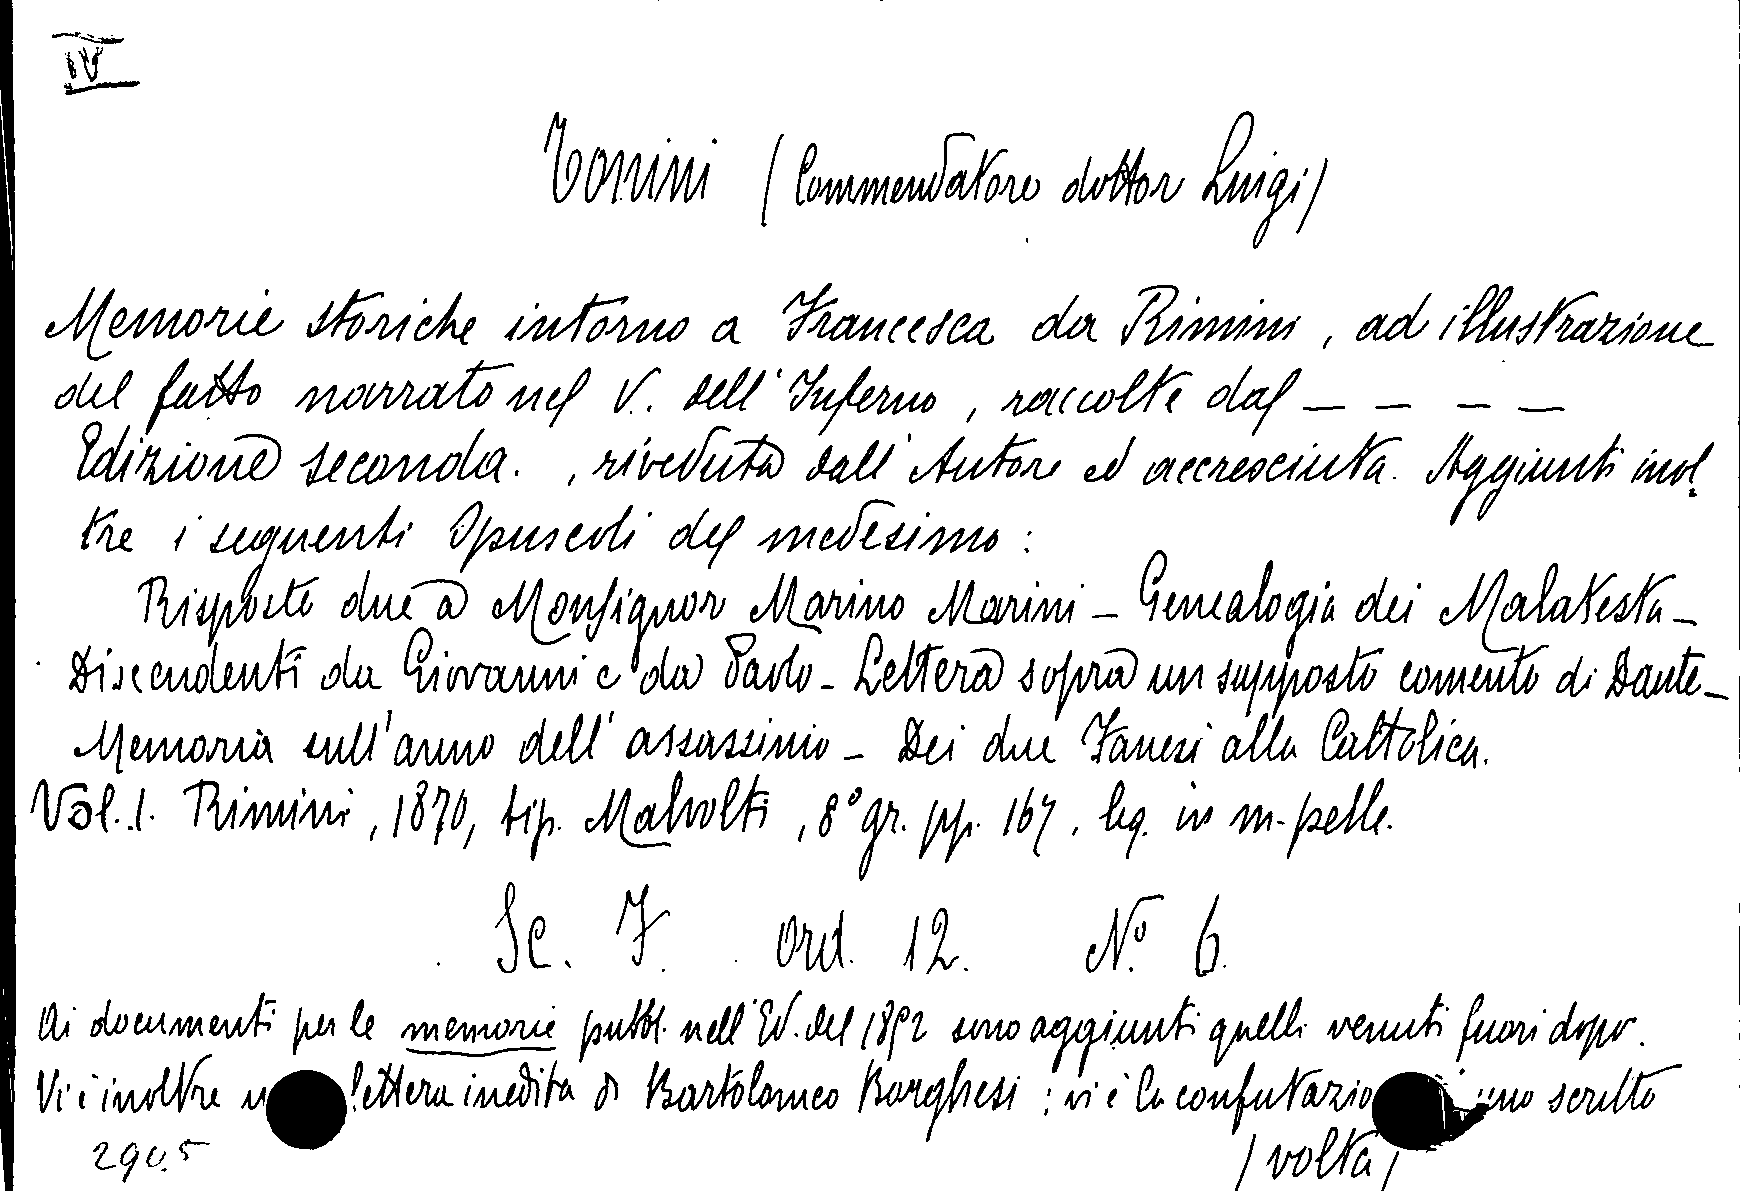 IV
Tonini (Commendatore dottor Luigi)
Memorie storiche intorno a Francesca da Rimini, ad illustrazione
del fatto narrato nel V. dell'Inferno, raccolte dal – – – –
Edizione seconda., riveduta dall'Autore ed accresciuta. Aggiunti inol-
tre i seguenti Opuscoli del medesimo:
Risposte due a Monsignor Marino Marini – Genealogia dei Malatesta –
Discendenti da Giovanni e da Paolo – Lettera sopra un supposto comento di Dante –
Memoria sull'anno dell'assassinio – Dei due Fanesi alla Cattolica.
Vol. 1. Rimini, 1870, tip. Malvolti, 8° gr. pp. 167. leg. in m. pelle.
Sc. F. Ord. 12. N.° 6.
Ai documenti per le memorie pubbl. nell'Ed. del 1852 sono aggiunti quelli venuti fuori dopo.
Vi è inoltre lettera inedita di Bartolomeo Borghesi: vi è la confutazio uno scritto
290.5 (volta)